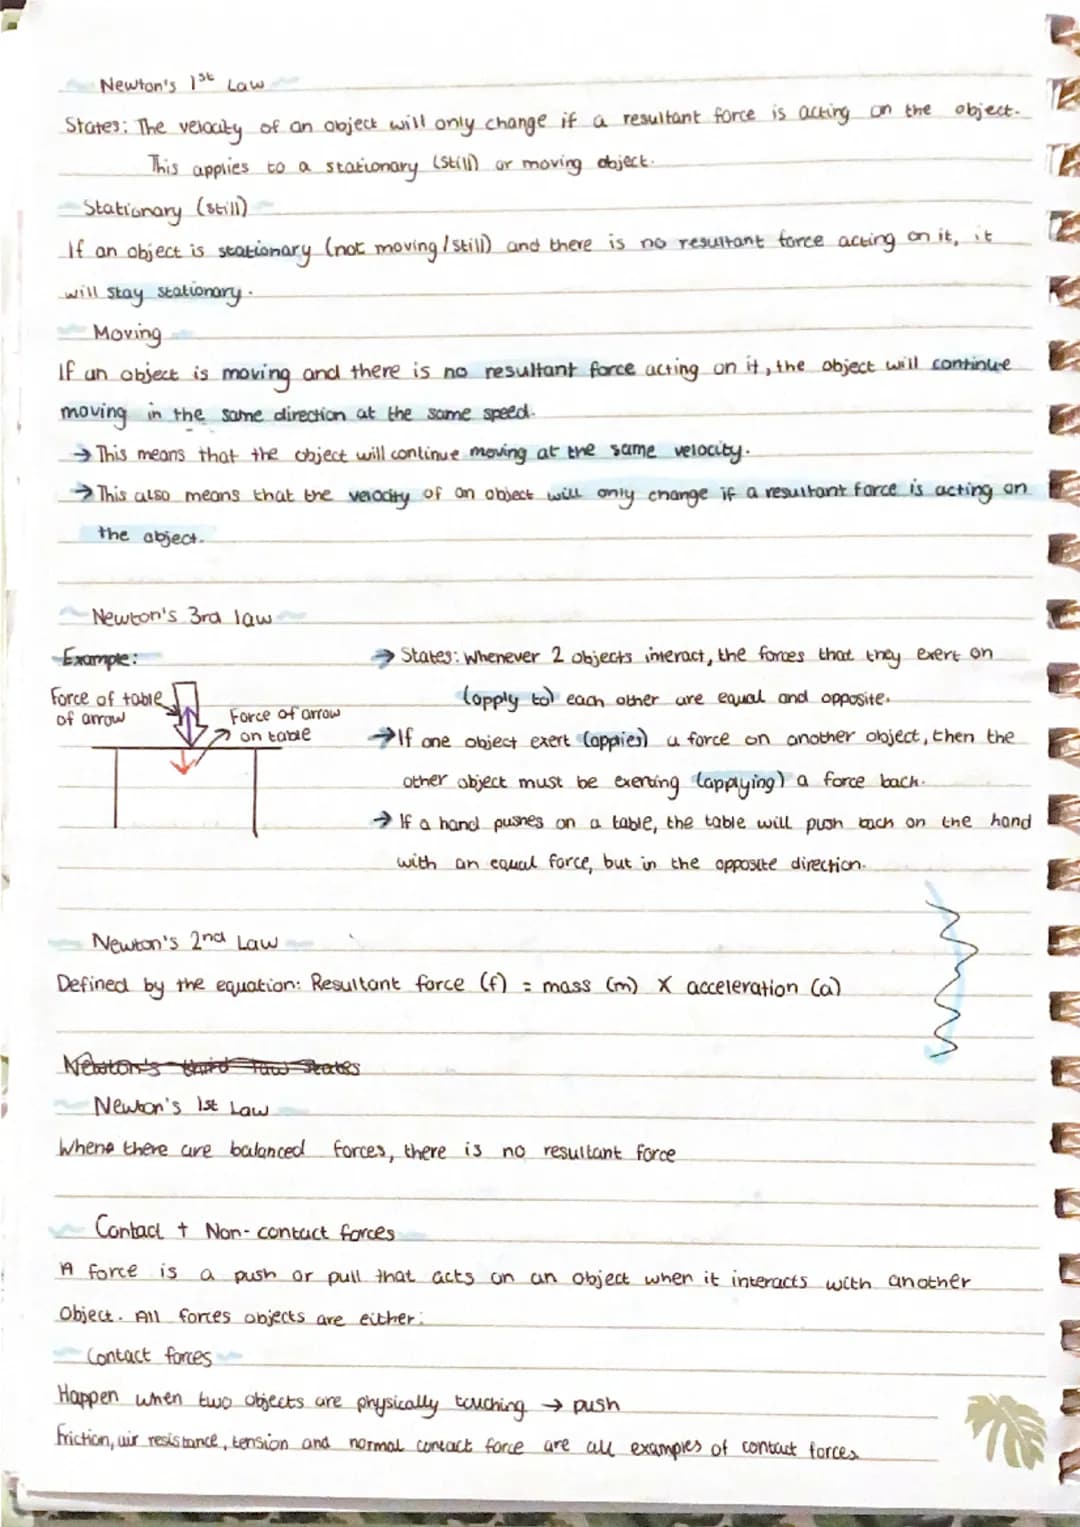 Newton's 1st Law
States: The velocity of an object will only change if a resultant force is acting on the object.
This applies to a stationary (still) or moving object.
Stationary (still)
If an object is stationary (not moving/still) and there is no resultant force acting on it, it
will stay stationary.
Moving
If an object is moving and there is no resultant force acting on it, the object will continue
moving in the same direction at the same speed.
→ This means that the object will continue moving at the same velocity.
→ This also means that the velocity of an object will only change if a resultant force is acting on
the object.
Newton's 3rd law
Example:
Force of table
of arrow
Force of arrow
on table
→ States: Whenever 2 objects interact, the forces that they exert on
(apply to) each other are equal and opposite.
→ If one object exert (applies) a force on another object, then the
other object must be exerting (applying) a force back.
→ If a hand pushes on a table, the table will push back on the hand
with an equal force, but in the opposite direction.
Newton's 2nd Law
Defined by the equation: Resultant force (f) = mass (m) X acceleration (a)
Newton's third law states
Newton's 1st Law
Whene there are balanced forces, there is no resultant force
Contact + Non-contact forces
A force is a push or pull that acts on an object when it interacts with another
object. All forces objects are either:
Contact forces
Happen when two objects are physically touching → push
friction, air resistance, tension and normal contact force are all examples of contact forces